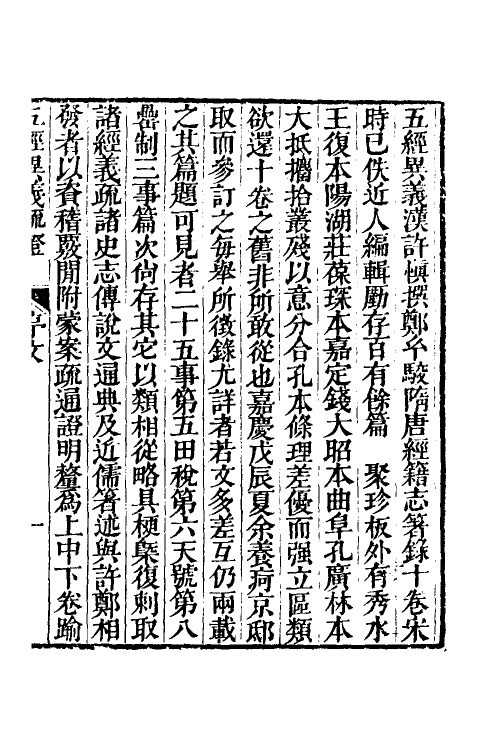 五經異義漢許慎撰鄭厶駮隋唐經籍志箸錄十卷宋
時已佚近人編輯勵存百有餘篇　聚珍板外有秀水
王復本陽湖莊葆琛本嘉定錢大昭本曲阜孔廣林本
大抵攟拾叢殘以意分合孔本條理差優而强立區類
欲還十卷之舊非所敢從也嘉慶戊辰夏余養疴京邸
取而參訂之每舉所徵錄尤詳者若文多差互仍兩載
之其篇題可見者二十五事第五田稅第六天號第八
罍制三事篇次尙存其它以類相從略具梗槩復刺取
諸經義疏諸史志傳說文通典及近儒箸述與許鄭相
發者以資稽覈閒附蒙案疏通證明釐爲上中下卷踰
五經異義疏證　序文　一